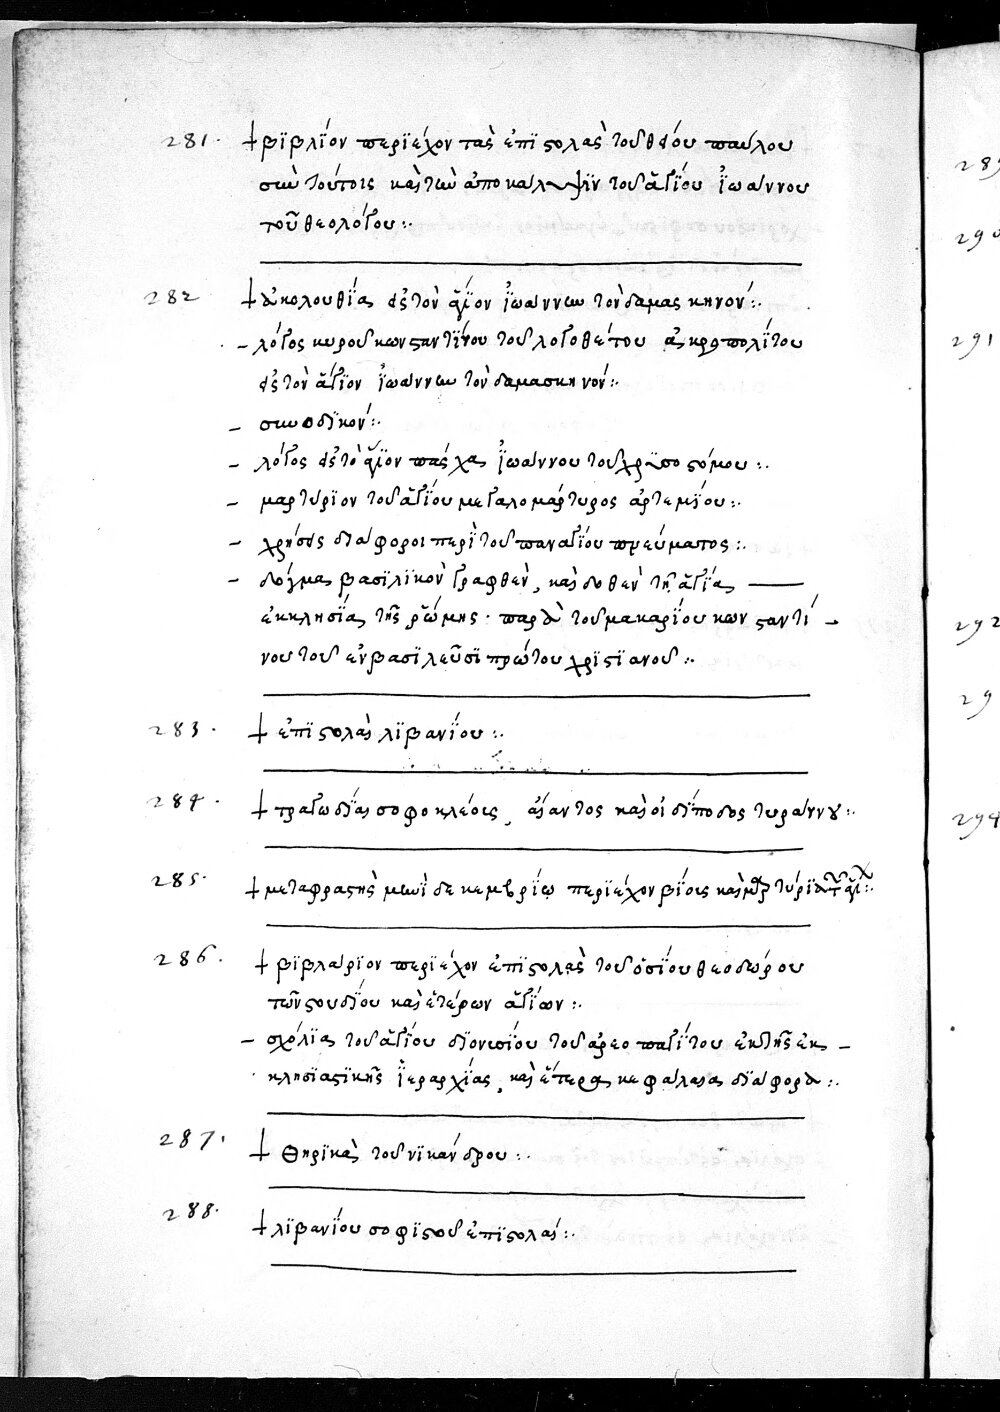 281. + βϊβλίον περϊέχον τὰς ἐπϊστολὰς τοῦ θείου παύλου
σὺν τούτοις καὶ τὴν ἀποκαλυψϊν τοῦ ἁγΐου Ἰωάννου
τοῦ θεολόγου:.
282 + ἀκολουθΐα εἰς τὸν ἅγϊον Ἰωάννην τὸν δαμασκηνόν:.
- λόγος κυροῦ κωνσταντΐνου τοῦ λογοθέτου ἀκροπολΐτου
εἰς τὸν ἅγϊον Ἰωάννην τὸν δαμασκηνόν:.
- συνοδϊκόν:.
- λόγος εἰς τὸ ἅγϊον πάσχα Ἰωάννου τοῦ χρϋσοστόμου:.
- μαρτύρϊον τοῦ ἁγΐου μεγαλομάρτυρος ἀρτεμΐου:.
- χρήσεις διάφοροι περῒ τοῦ παναγΐου πνεύματος:.
- δόγμα βασϊλϊκὸν γραφθὲν, καὶ δοθὲν τῇ ἁγΐα
ἐκκλησΐα τῆς ῥώμης · παρὰ τοῦ μακαρΐου κωνσταντί -
νου τοῦ ἐν βασϊλεῦσϊ πρώτου χρϊστϊανοῦ:.
283 · + ἐπϊστολαὶ λϊβανΐου:.
284 · + τραγωδΐαι σοφοκλέοις, αἴαντος καὶ οἰδΐποδος τυράννου:.
285 · + μεταφραστὴς μηνὶ δεκεμβρΐω περϊέχον βΐοις καὶ μαρτύρϊα τῶν ἁγΐων:.
286 · + βϊβλάρϊον περϊέχον ἐπϊστολὰς τοῦ ὁσΐου θεοδώρου
τῶν στουδΐου καὶ ἑτέρων ἁγΐων:.
- σχόλϊα τοῦ ἁγΐου δϊονυσΐου τοῦ ἀρεοπαγΐτου ἐκ τῆς ἐκ -
κλησϊαστϊκῆς Ἰεραρχΐας, καὶ ἕτερα κεφάλαια δϊάφορα:.
287 · + θηρϊκαὶ τοῦ νϊκάνδρου:.
288 · + λϊβανΐου σοφϊστοῦ ἐπϊστολαί:.
290
291
292
294